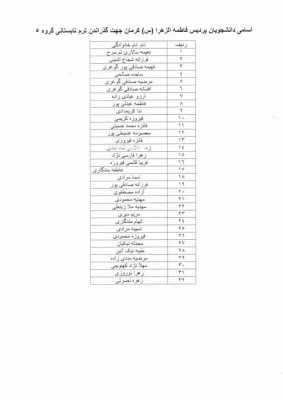 اسامی دانشجویان پردیس فاطمه الزهرا (س) کرمان جهت گذراندن ترم تابستانی گروه ۵
ردیف نام نام خانوادگی
۱ نعیمه سالاری
۲ فرزانه شجاع الدینی
۳ فهیمه صادقی پور گوغری
۴ ساجده صالحی
۵ مرضیه صادقی گوغری
۶ افسانه صادقی گوغری
۷ آرزو عبادی زاده
۸ فاطمه عبدلی پور
۹ ندا کریمدادی
۱۰ فیروزه کریمی
۱۱ فائزه محمد حسینی
۱۲ معصومه غنجعلی پور
۱۳ فائزه فیروزی
۱۴
۱۵ زهرا فارسی نژاد
۱۶ فریبا فتحی فیروزه
۱۷ عاطفه ماندگاری
۱۸ اسما مرادی
۱۹ فرزانه صادقی پور
۲۰ آزاده مصطفوی
۲۱ مهدیه محمودی
۲۲ مهدیه ملا زینعلی
۲۳ مریم میری
۲۴ الهام ماندگاری
۲۵ نسیبه مرادی
۲۶ فیروزه محمودی
۲۷ محدثه نیکیان
۲۸ طیبه نیک آئین
۲۹ مرضیه مددی زاده
۳۰ مهلا نژاد کهنوجی
۳۱ زهرا نوروزی
۳۹ زهره نصرتی